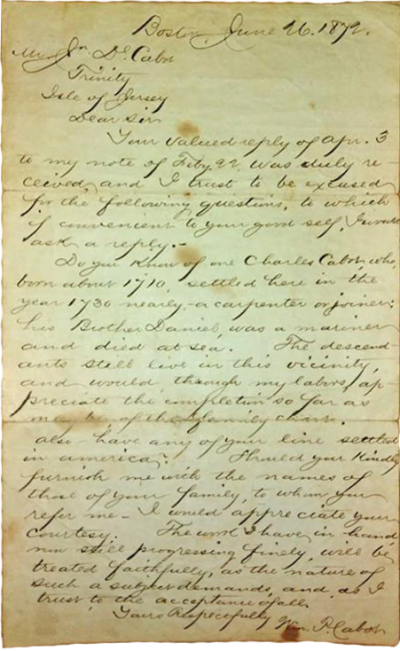 Boston, June 26. 1872.
Mr. Jn. De Cabot
Trinity
Isle of Jersey
Dear Sir
Your valued reply of Apr. 3
to my note of Feby. 22 was duly re-
ceived, and I trust to be excused
for the following questions, to which
if convenient to your good self, I would
ask a reply.-
Do you know of one Charles Cabot, who,
born about 1710, settled here in the
year 1730 nearly - a carpenter or joiner;
his Brother Daniel, was a mariner
and died at sea. The descend-
ants still live in this vicinity,
and would, through my labors, ap-
preciate the completion so far as
may be, of the family chain.
also - have any of your line settled
in america? Should you kindly
furnish me with the names of
those of your family, to whom you
refer me - I would appreciate your
courtesy. The work I have in hand,
now still progressing finely, will be
treated faithfully, as the nature of
such a subject demands, and, as I
trust to the acceptance of all.
Yours Respectfully Wm. P. Cabot